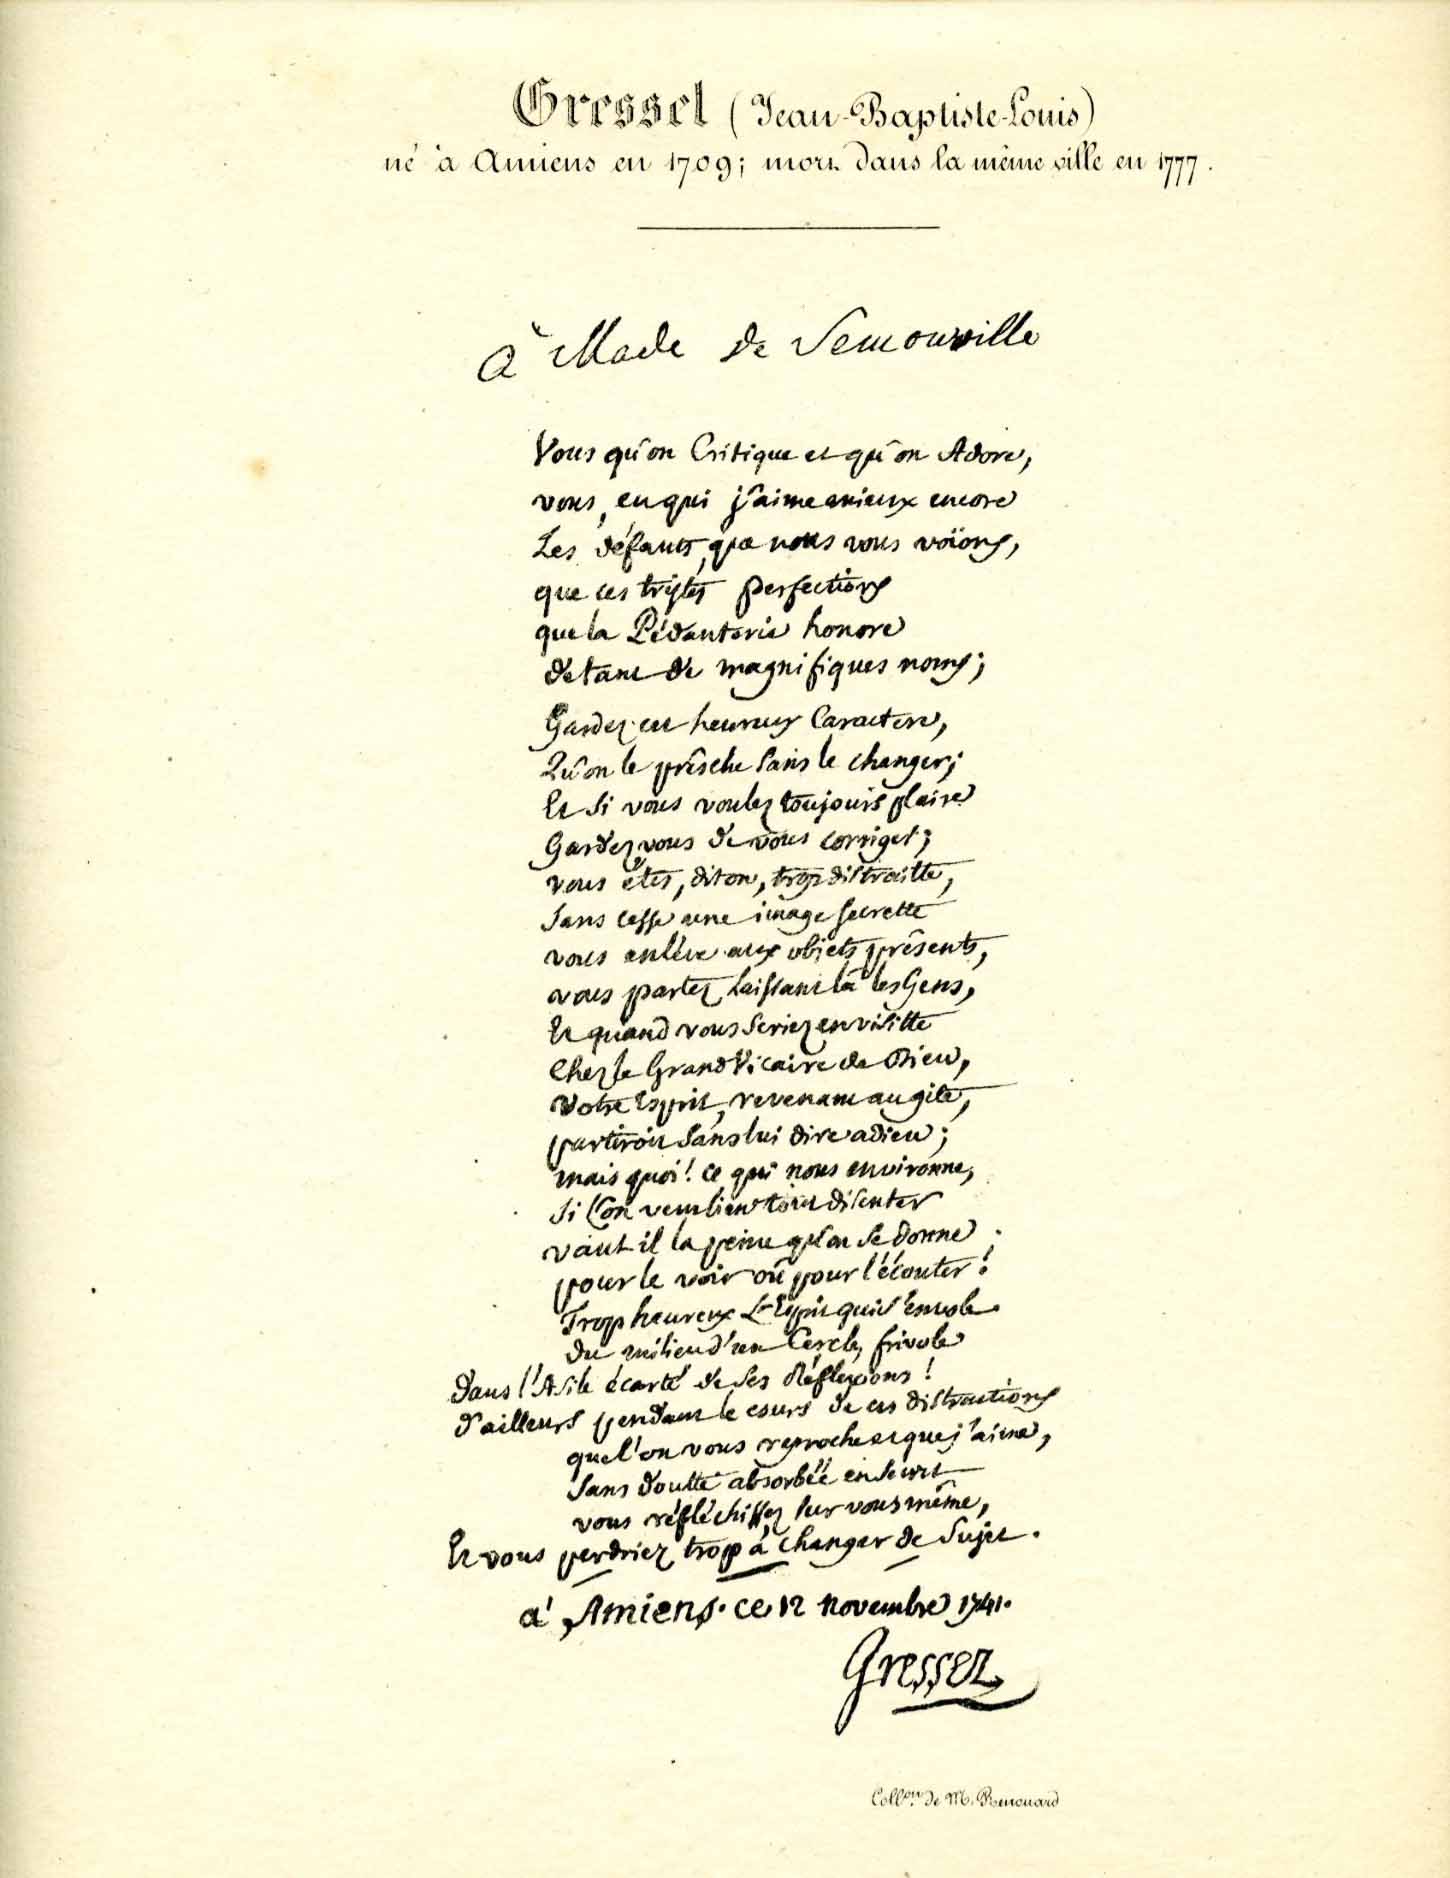 Gresset (Jean-Baptiste-Louis)
né à Amiens en 1709; mort dans la même ville en 1777.
à Made de Semonville
Vous qu'on Critique et qu'on Adore,
vous, en qui j'aime mieux encore
Les défauts, que nous vous voïons,
que ces tristes perfections
que la Pédanterie honore
de tant de magnifiques noms;
Gardez cet heureux Caractere,
Qu'on le prêsche sans le changer;
Et si vous voulez toujours plaire
Gardez vous de vous corriger;
vous êtes, dit on, trop distraitte,
Sans cesse une image secrette
vous enlève aux objets présents,
vous partez laissant là les Gens,
Et quand vous seriez en visitte
Chez le Grand Vicaire de Dieu,
Votre Esprit, revenant au gîte,
partiroit sans lui dire adieu;
mais quoi! ce qui nous environne,
Si l'on veut bien tout discuter
vaut il la peine qu'on se donne
pour le voir ou pour l'écouter!
Trop heureux L'Esprit qui s'envole
Du milieu d'un Cercle, frivole
Dans l'Asile écarté de ses Réflexions!
D'ailleurs pendant le cours de ces distractions
que l'on vous reproche et que j'aime,
Sans doutte absorbéé en secret
vous réfléchissez sur vous même,
Et vous perdriez trop à changer de Sujet.
à Amiens. ce 12 novembre 1741.
Gresset
Coll.on de M. Renouard